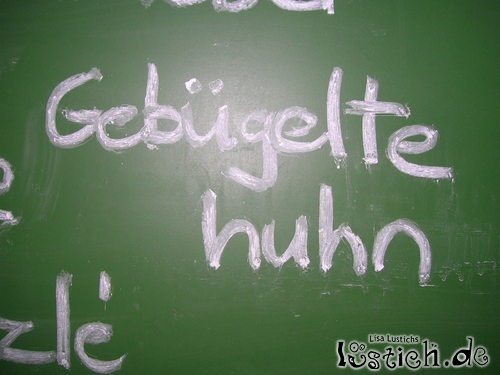 Gebügelte
huhn
zle
Lisa Lustichs
lustich.de